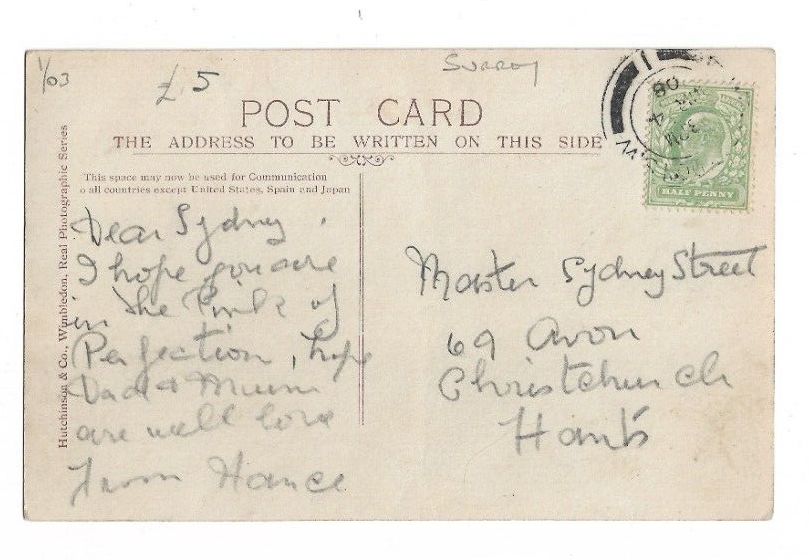 1/03
£5
Surrey
POST CARD
THE ADDRESS TO BE WRITTEN ON THIS SIDE
This space may now be used for Communication
o all countries except United States, Spain and Japan
Hutchinson & Co., Wimbledon, Real Photographic Series
HALF PENNY
08
Dear Sydney.
I hope you are
in the Pink of
Perfection, hope
Dad & Mum
are well love
from Hance
Master Sydney Street
69 Avon
Christchurch
Hants